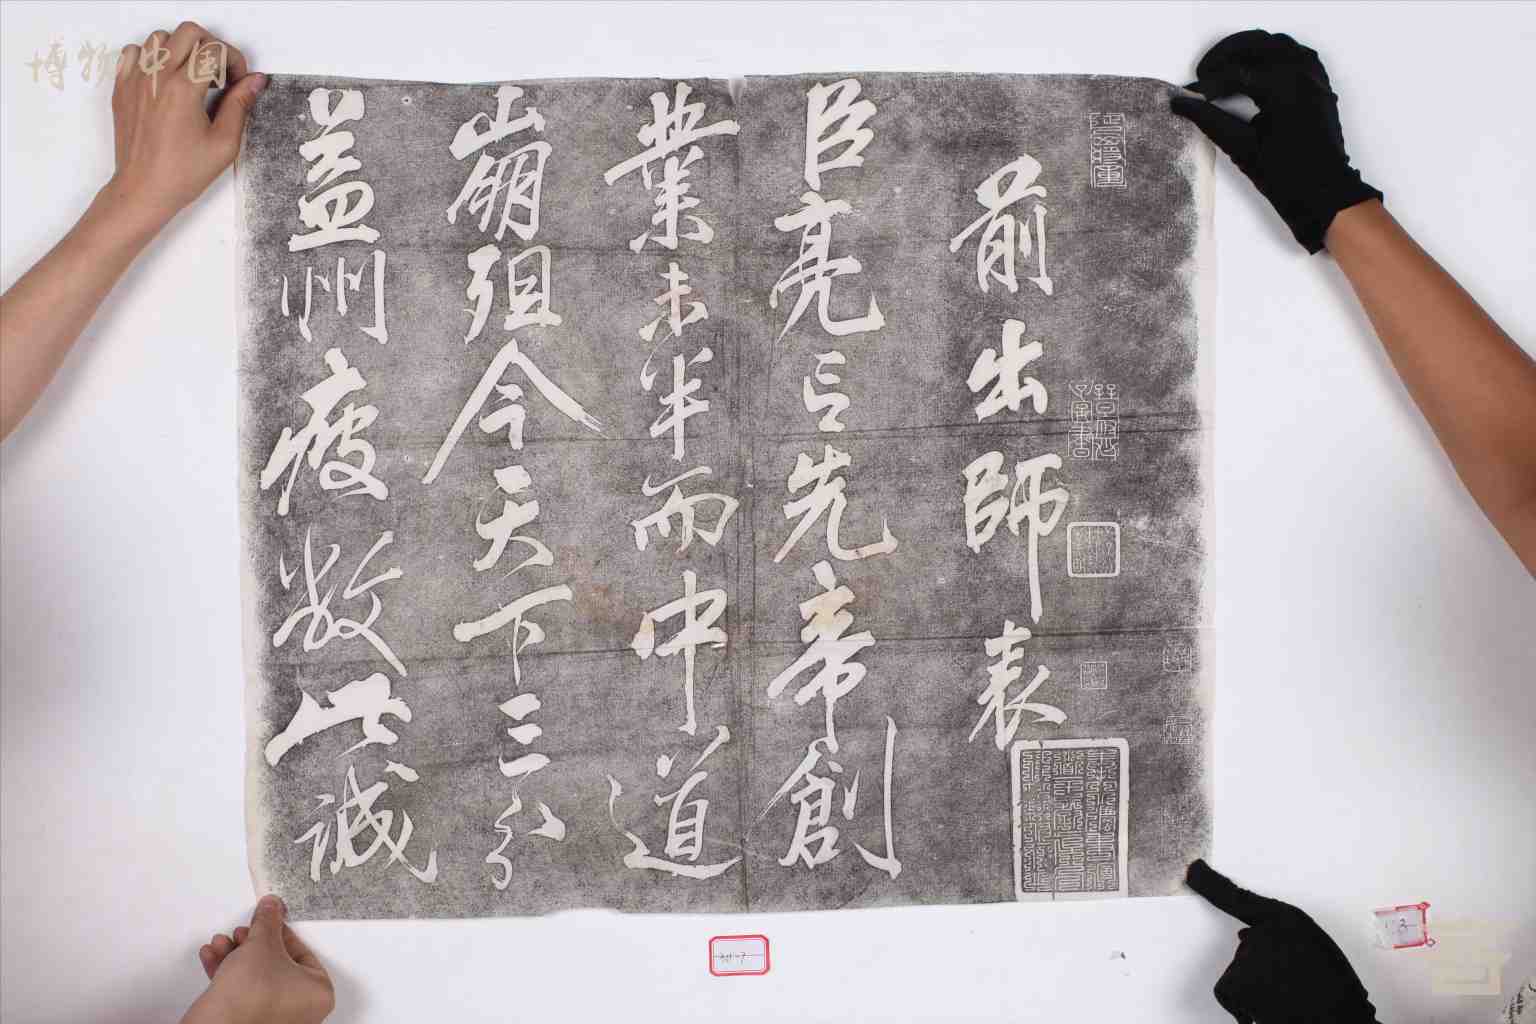 前出師表
臣亮言先帝創
業未半而中道
崩殂今天下三分
益州疲敝此誠
博物中国